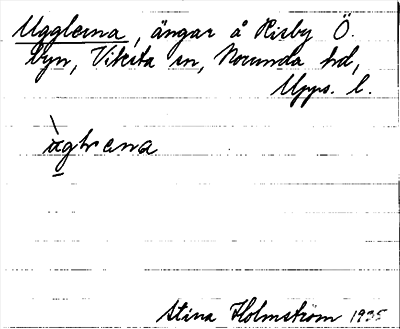 Ugglerna, ängar å Risby Ö.
byn, Viksta sn, Norunda hd,
Upps. l.
Stina Holmström 1935